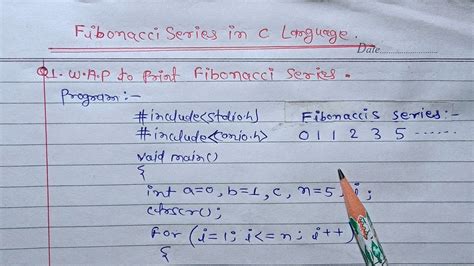 Fibonacci Series in C Language.
Date
Q1. W.A.P to Print Fibonacci Series.
Program:-
#include<stdio.h>
Fibonaccis Series:-
#include<conio.h>
0 1 1 2 3 5 ......
void main()
{
int a=0, b=1, c, n=5, i;
clrscr();
for (i=1; i<=n; i++)
{